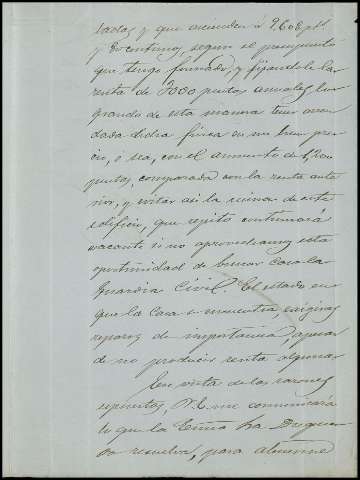 tados y que ascienden á 9.608 pts
y 50 centimos, segun el presupuesto
que tengo formado, y fijandole la
renta de 3000 pesetas anuales lo
grando de esta manera tener arren
dada dicha finca en un buen pre
cio, ó sea, con el aumento de
pesetas, comparada con la renta ante
rior, y evitar asi la ruina de este
edificio, que repito continuará
vacante si no aprovechamos esta
oportunidad de buscar casa la
Guardia Civil. El estado en
que la Casa se encuentra, exigirá
reparos de importancia, apesar
de no producir renta alguna.
En vista de las razones
expuestas, V.E. me comunicará
lo que la Excma Sra Duquesa
resuelva, para atenerme